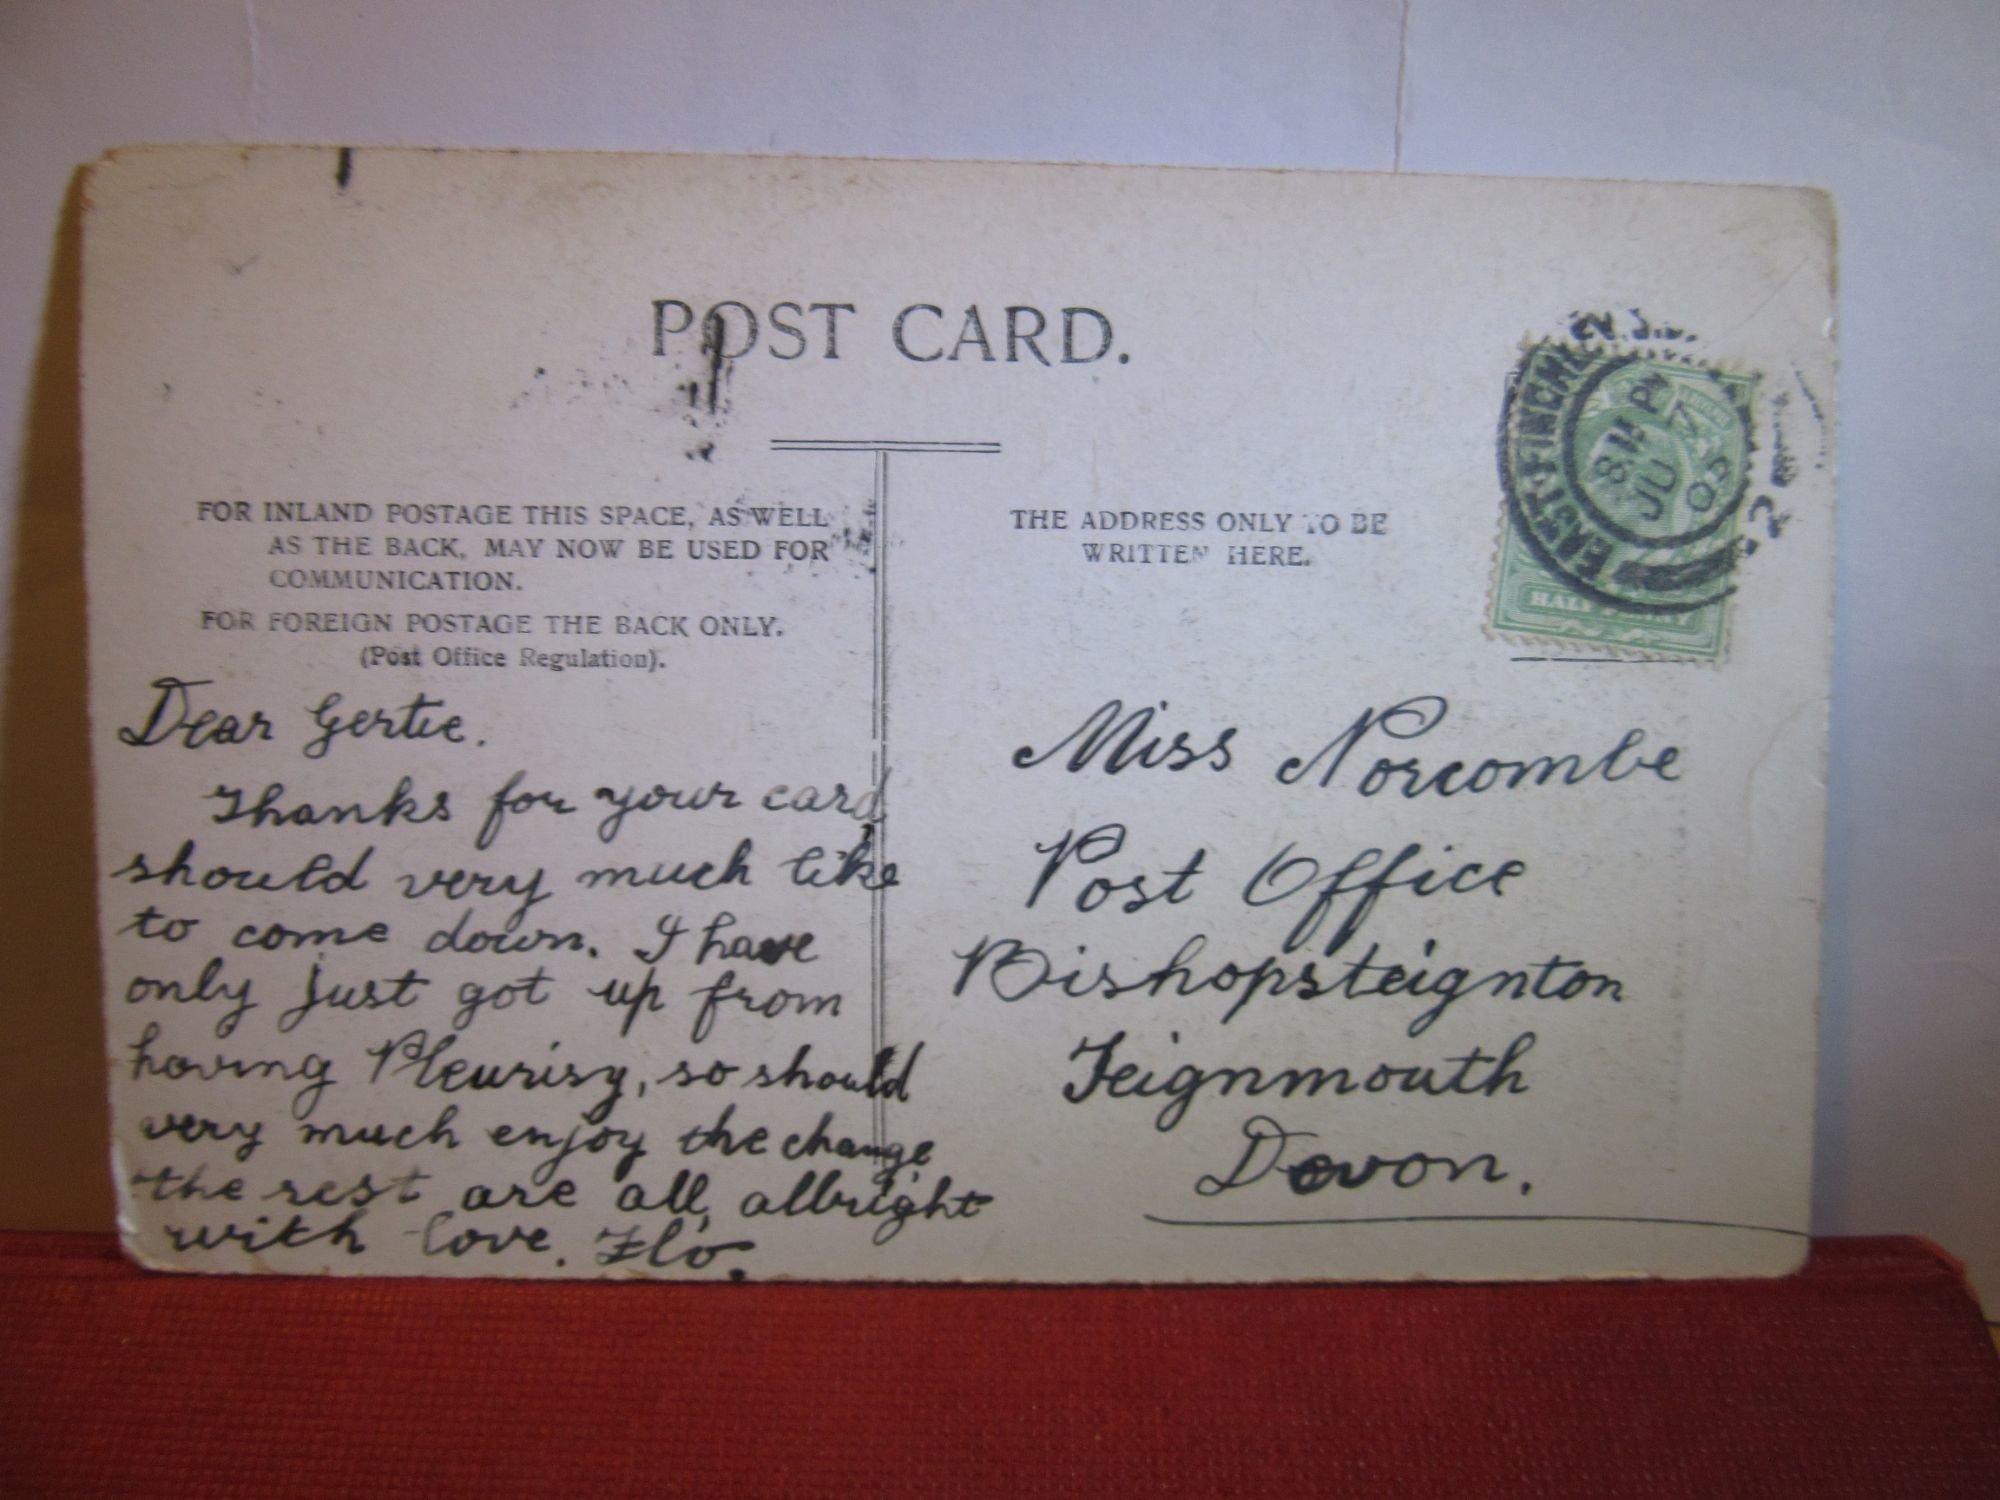 POST CARD.
FOR INLAND POSTAGE THIS SPACE, AS WELL
AS THE BACK, MAY NOW BE USED FOR
COMMUNICATION.
FOR FOREIGN POSTAGE THE BACK ONLY.
(Post Office Regulation).
Dear Gertie.
Thanks for your card,
should very much like
to come down. I have
only just got up from
having Pleurisy, so should
very much enjoy the change
the rest are all allright
with love. Flo.
THE ADDRESS ONLY TO BE
WRITTEN HERE.
EAST-FINCHLEY
JU
HALFPENNY
Miss Norcombe
Post Office
Bishopsteignton
Teignmouth
Devon.